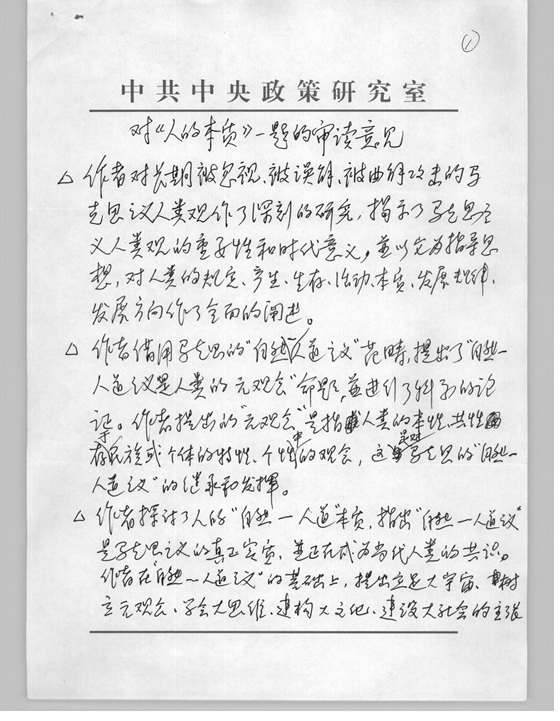 ①
中共中央政策研究室
对《人的本质》一题的审读意见
△ 作者对长期被忽视、被误解、被曲解攻击的马
克思主义人类观作了深刻的研究，揭示了马克思主
义人类观的重要性和时代意义，并以它为指导思
想，对人类的规定、产生、生存、活动、本质、发展规律、
发展方向作了全面的阐述。
△ 作者借用马克思的“自然—人道主义”范畴，提出了“自然—
人道主义是人类的元观念”命题，并进行了科学的论
证。作者提出的“元观念”是指人类的本性、共性
存于民族或个体的特性、个性中的观念，这是对马克思的“自然—
人道主义”的继承和发挥。
△ 作者探讨了人的“自然—人道”本质，指出“自然—人道主义”
是马克思主义的真正实质，并正在成为当代人类的共识。
作者在“自然—人道主义”的基础上，提出立足大宇宙、树
立元观念、学会大思维、建构大文化、建设大社会的主张